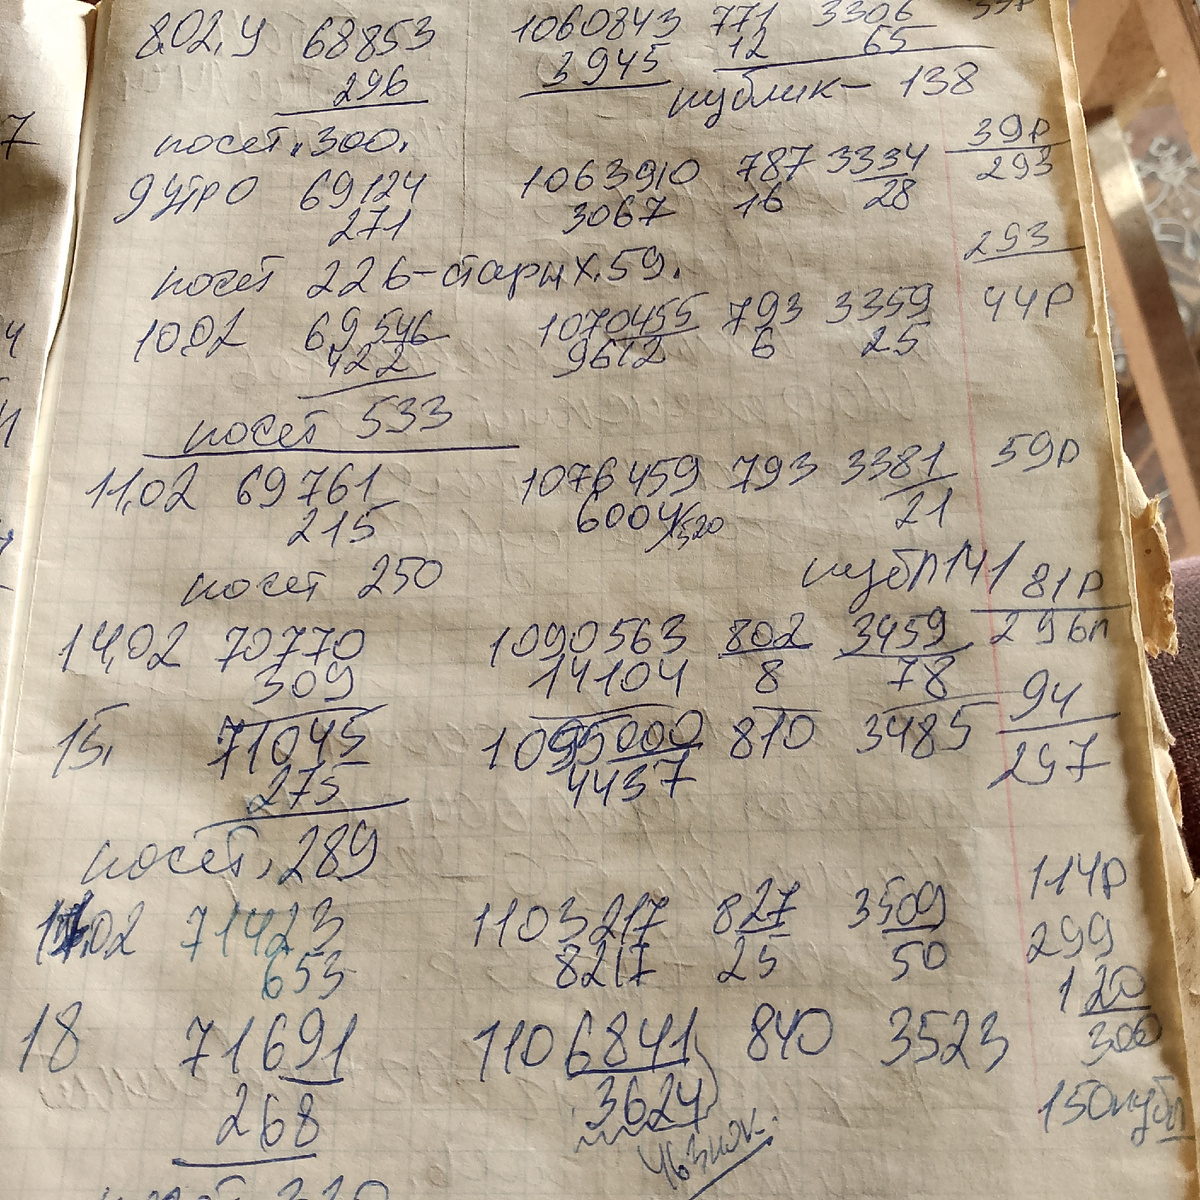 8.02.У 68853 1060843 771 3306
296 3945 12 65
публик- 138
посет. 300.
39р
9 утро 69124 1063910 787 3334 293
271 3067 16 28
293
посет 226-старых.59.
10.02 69546 1070455 793 3359 44р
422 9612 6 25
посет 533
11.02 69761 1076459 793 3381 59р
215 6004 21
посет 250 публ 141 81р
14.02 70770 1090563 802 3459 296п
309 14104 8 78 94
15. 71045 1095000 810 3485 297
275 4437
посет. 289
114р
.02 71423 1103217 827 3509 299
653 8217 25 50 120
18 71691 1106841 840 3523 300
268 3624 150публ